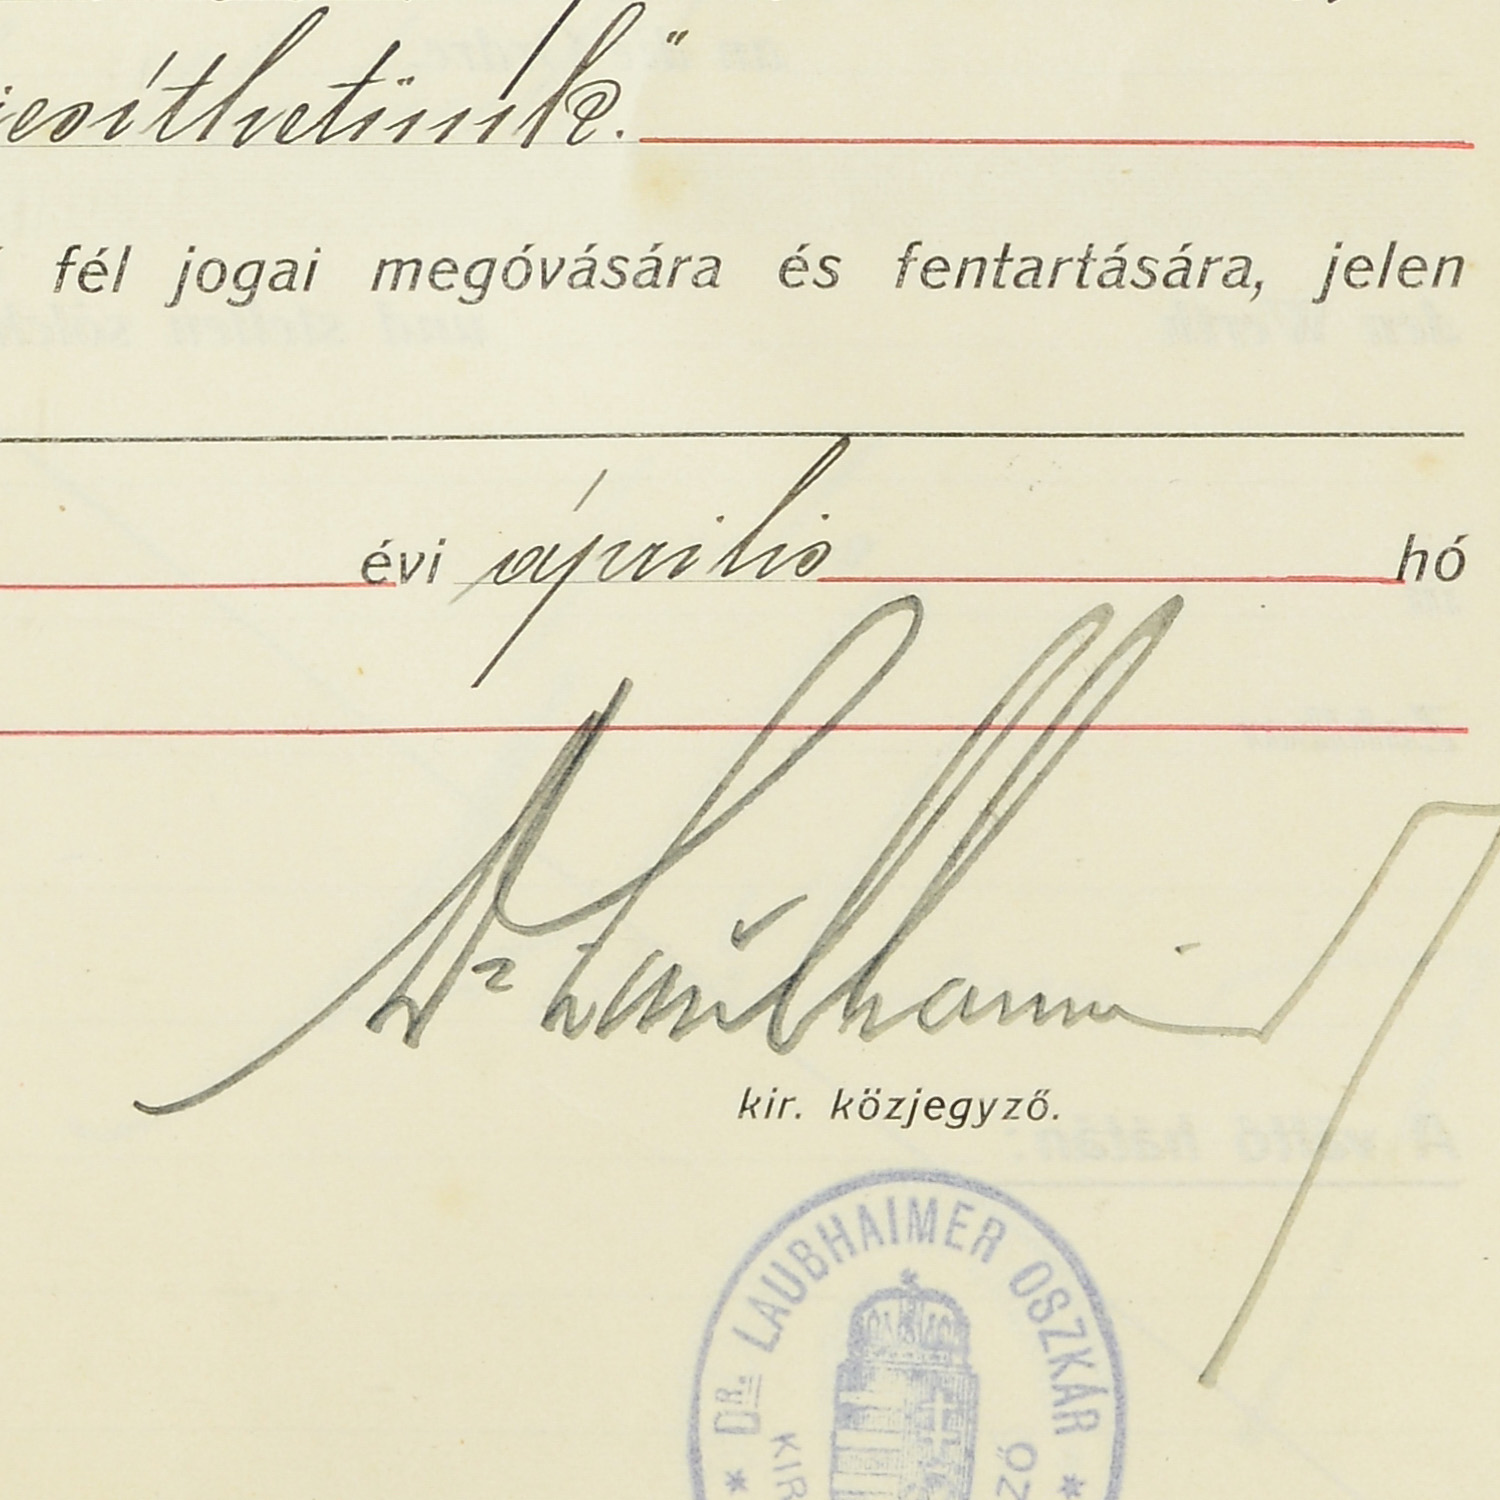 esíthetünk."
fél jogai megóvására és fentartására, jelen
évi április hó
Dr Laubhaimer
kir. közjegyző.
DR. LAUBHAIMER OSZKÁR
KIR